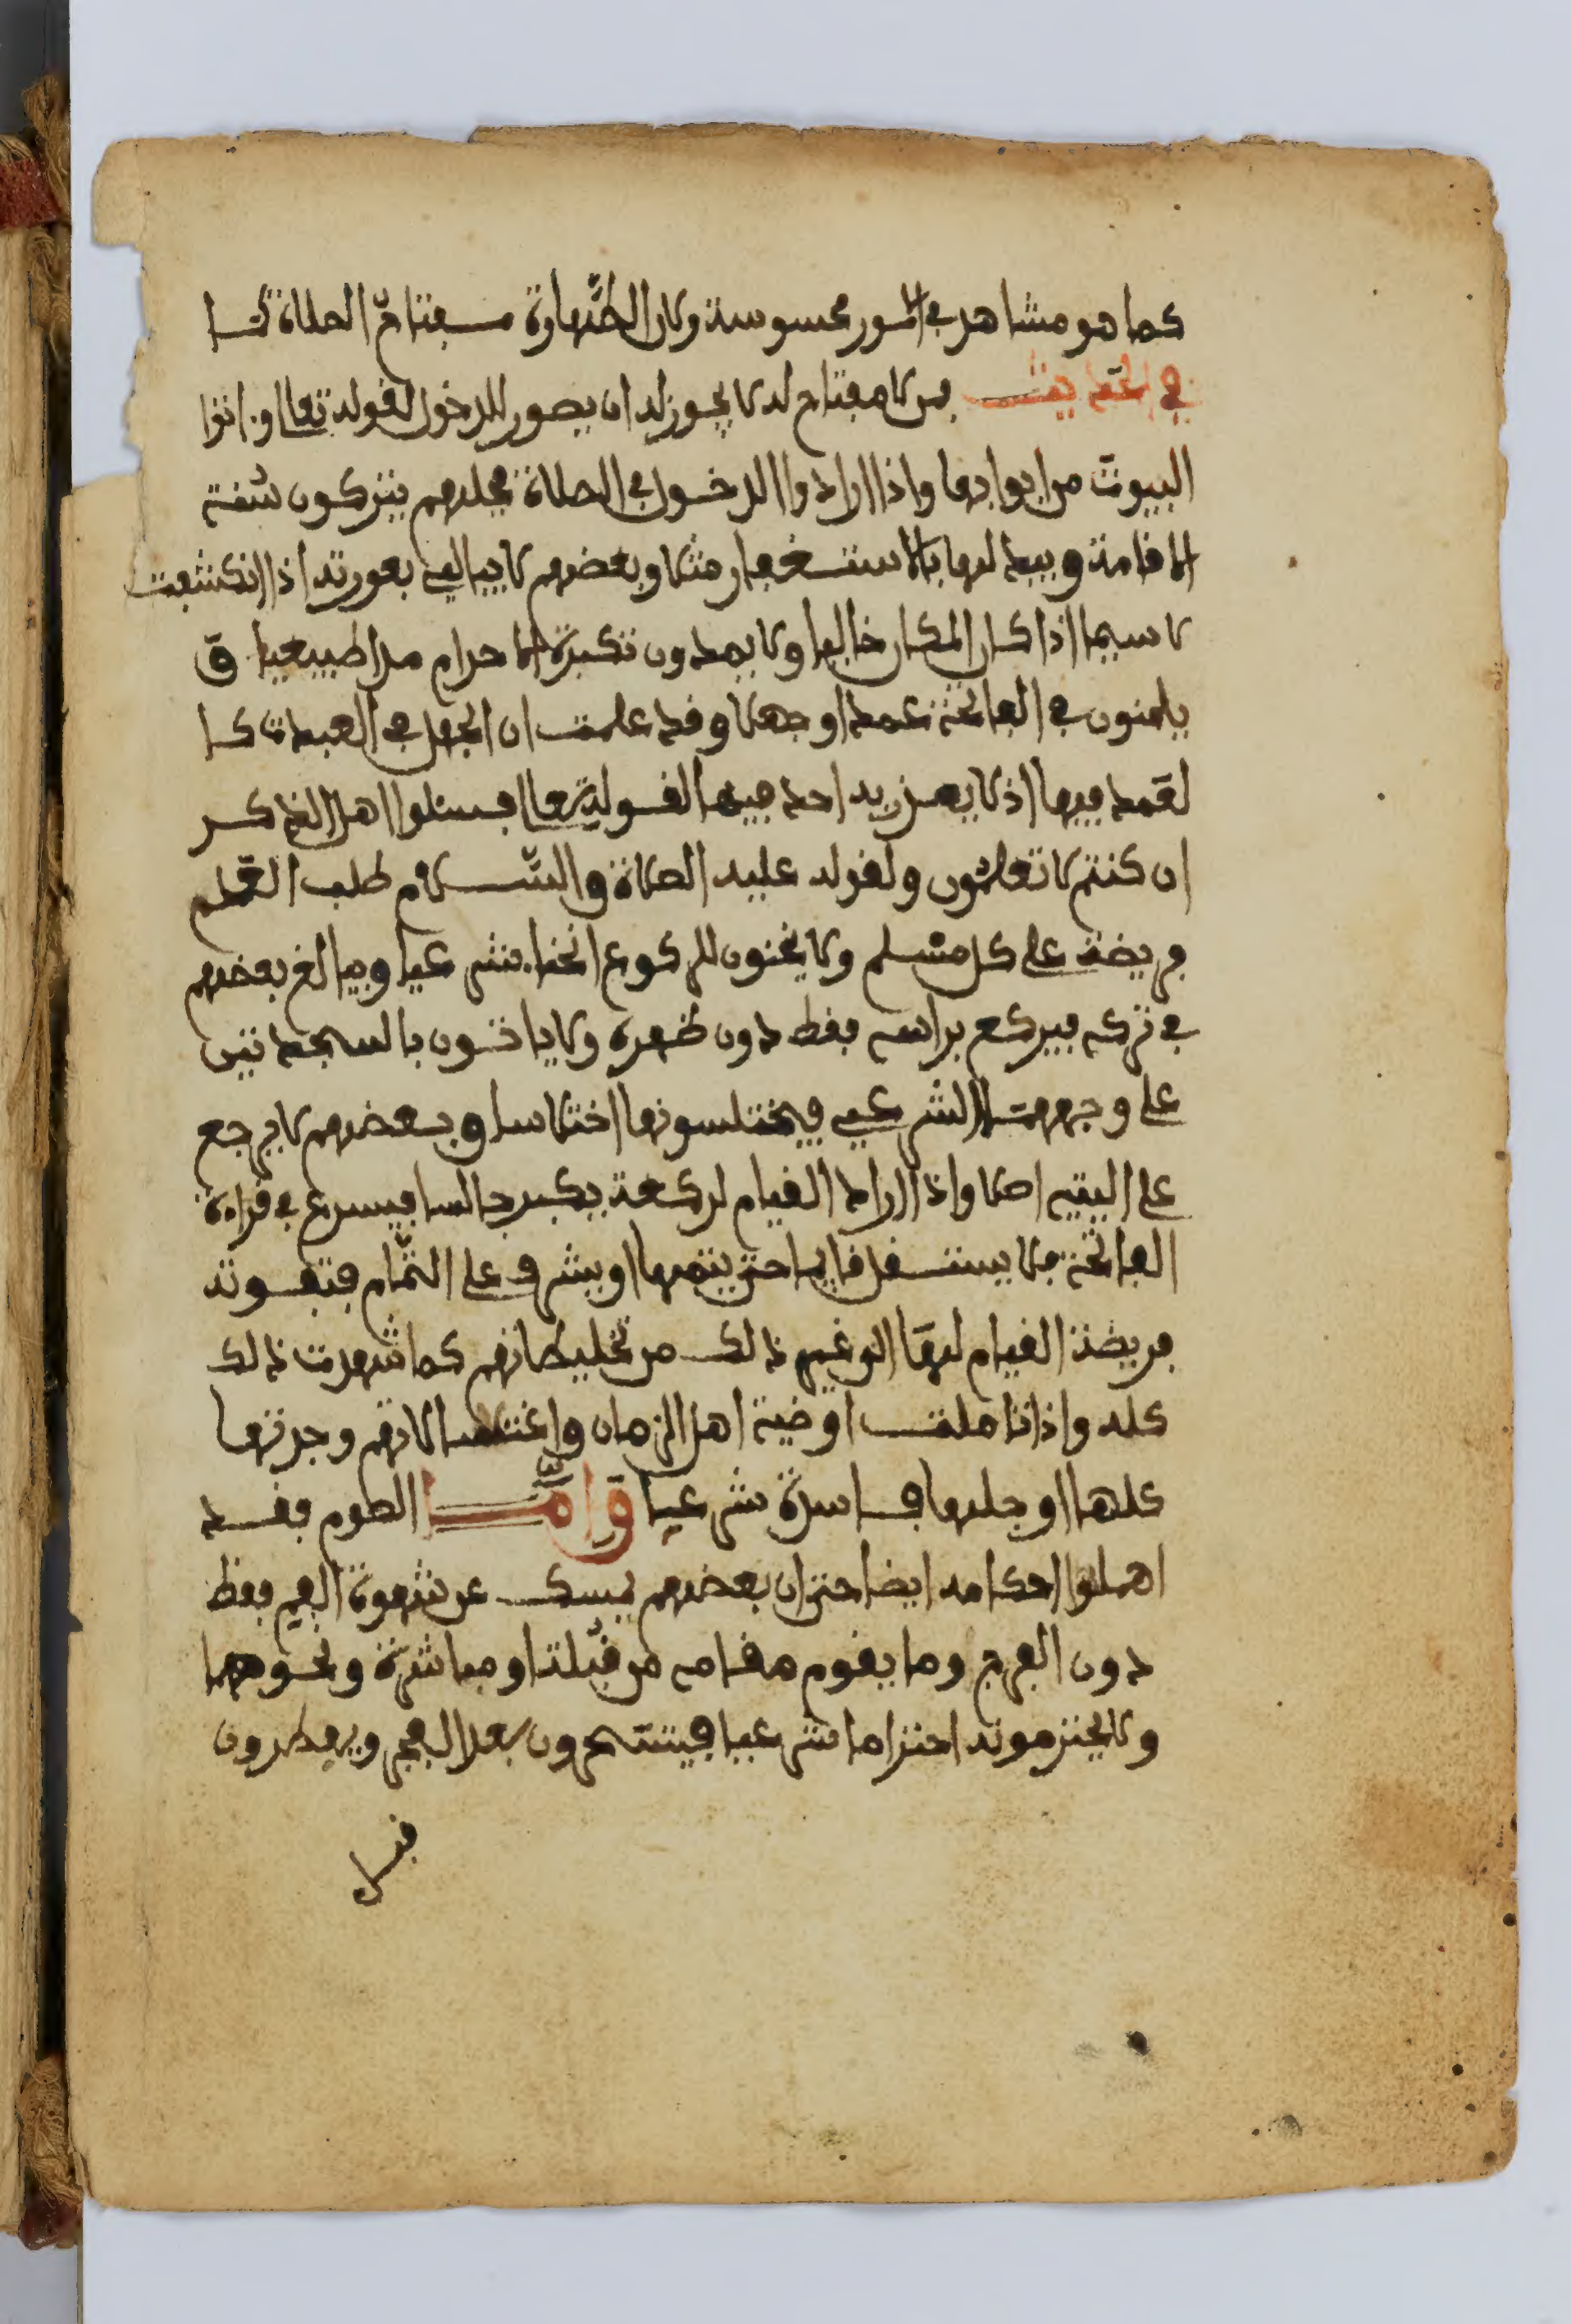 كما هو مشاهد في الامور محسوسة وكان الطهارة مفتاح الصلاة كما
في الحديث فمن لا مفتاح له لا يجوز له ان يصور للدخول لقوله تعالى واتوا
البيوت من ابوابها واذا ارادوا الدخول في الصلاة فجلهم يتركون سنة
الاقامة ويبدلها بالاستغفار مثلا وبعضهم لا يبالي بعورته اذا انكشفت
لا سيما اذا كان المكان خاليا ولا يمدون تكبيرة الاحرام مدا طبيعيا و
يلحنون في الفاتحة عمدا وجهلا وقد علمت ان الجهل في العبدات كا
لعمد فيها اذ لا يعذر به احد فيها لقوله تعالى فسئلوا اهل الذكر
ان كنتم لا تعلمون ولقوله عليه الصلاة والسلام طلب العلم
فريضة على كل مسلم ولا ينحنون للركوع انحناء شرعيا ويبالغ بعضهم
في تركه فيركع براسه فقط دون ظهره ولا ياتون بالسجدتين
على وجههما الشرعي فيختلسونها اختلاسا وبعضهم لا يرجع
على اليتيه اصلا واذا اراد القيام لركعة يكبر جالسا فيسرع في قراءة
الفاتحة فلا يستقل قايما حتى يتمها او يشرف على التمام فتفوته
فريضة القيام لها الى غير ذلك من تخليطاتهم كما شهدت ذلك
كله واذا تاملت اوضية اهل الزمان واغتسالاتهم وجدتها
كلها او جلها فاسدة شرعيا وامّا الصوم فقد
اهملوا احكامه ايضا حتى ان بعضهم يمسك عن شهوة الفم فقط
دون الفرج وما يقوم مقامه من قبلة او مباشرة ونحوهما
ولا يحترمونه احتراما شرعيا فيتسحرون بعد الفجر ويفطرون
قبل